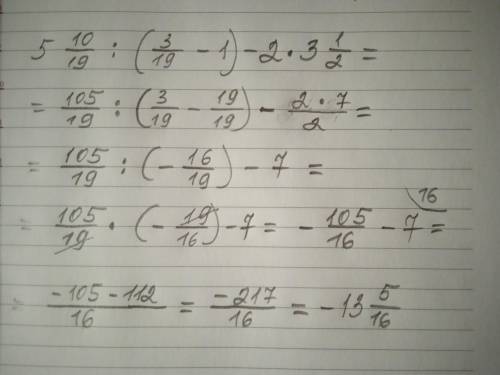 5 10/19 : (3/19 - 1) - 2 · 3 1/2 =
= 105/19 : (3/19 - 19/19) - 2·7/2 =
= 105/19 : (- 16/19) - 7 =
= 105/19 · (- 19/16) - 7 = - 105/16 - 7 (16 =
= -105-112/16 = -217/16 = -13 5/16